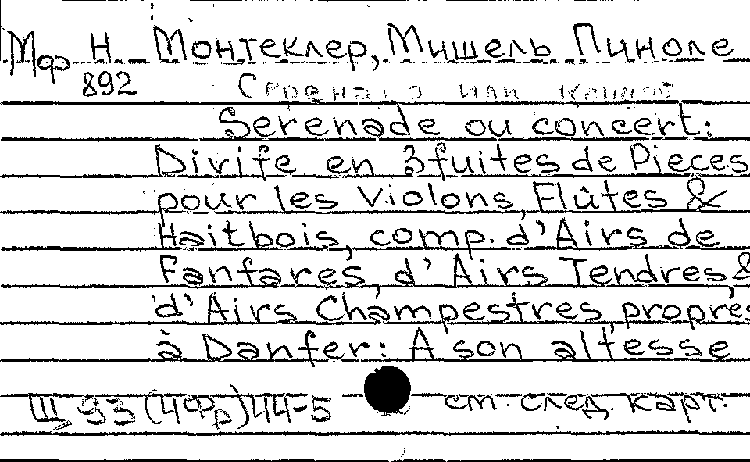 Мф Н Монтеклер, Мишель Пиноле
892 Серенада или концерт
Serenade ou concert:
Divife en 3 fuites de Pieces
pour les Violons, Flûtes &
Haitbois, comp. d'Airs de
Fanfares, d'Airs Tendres &
d'Airs Champestres, propres
à Danfer: A son altesse
Щ 93 (4Фр) 44-5 см. след. карт.